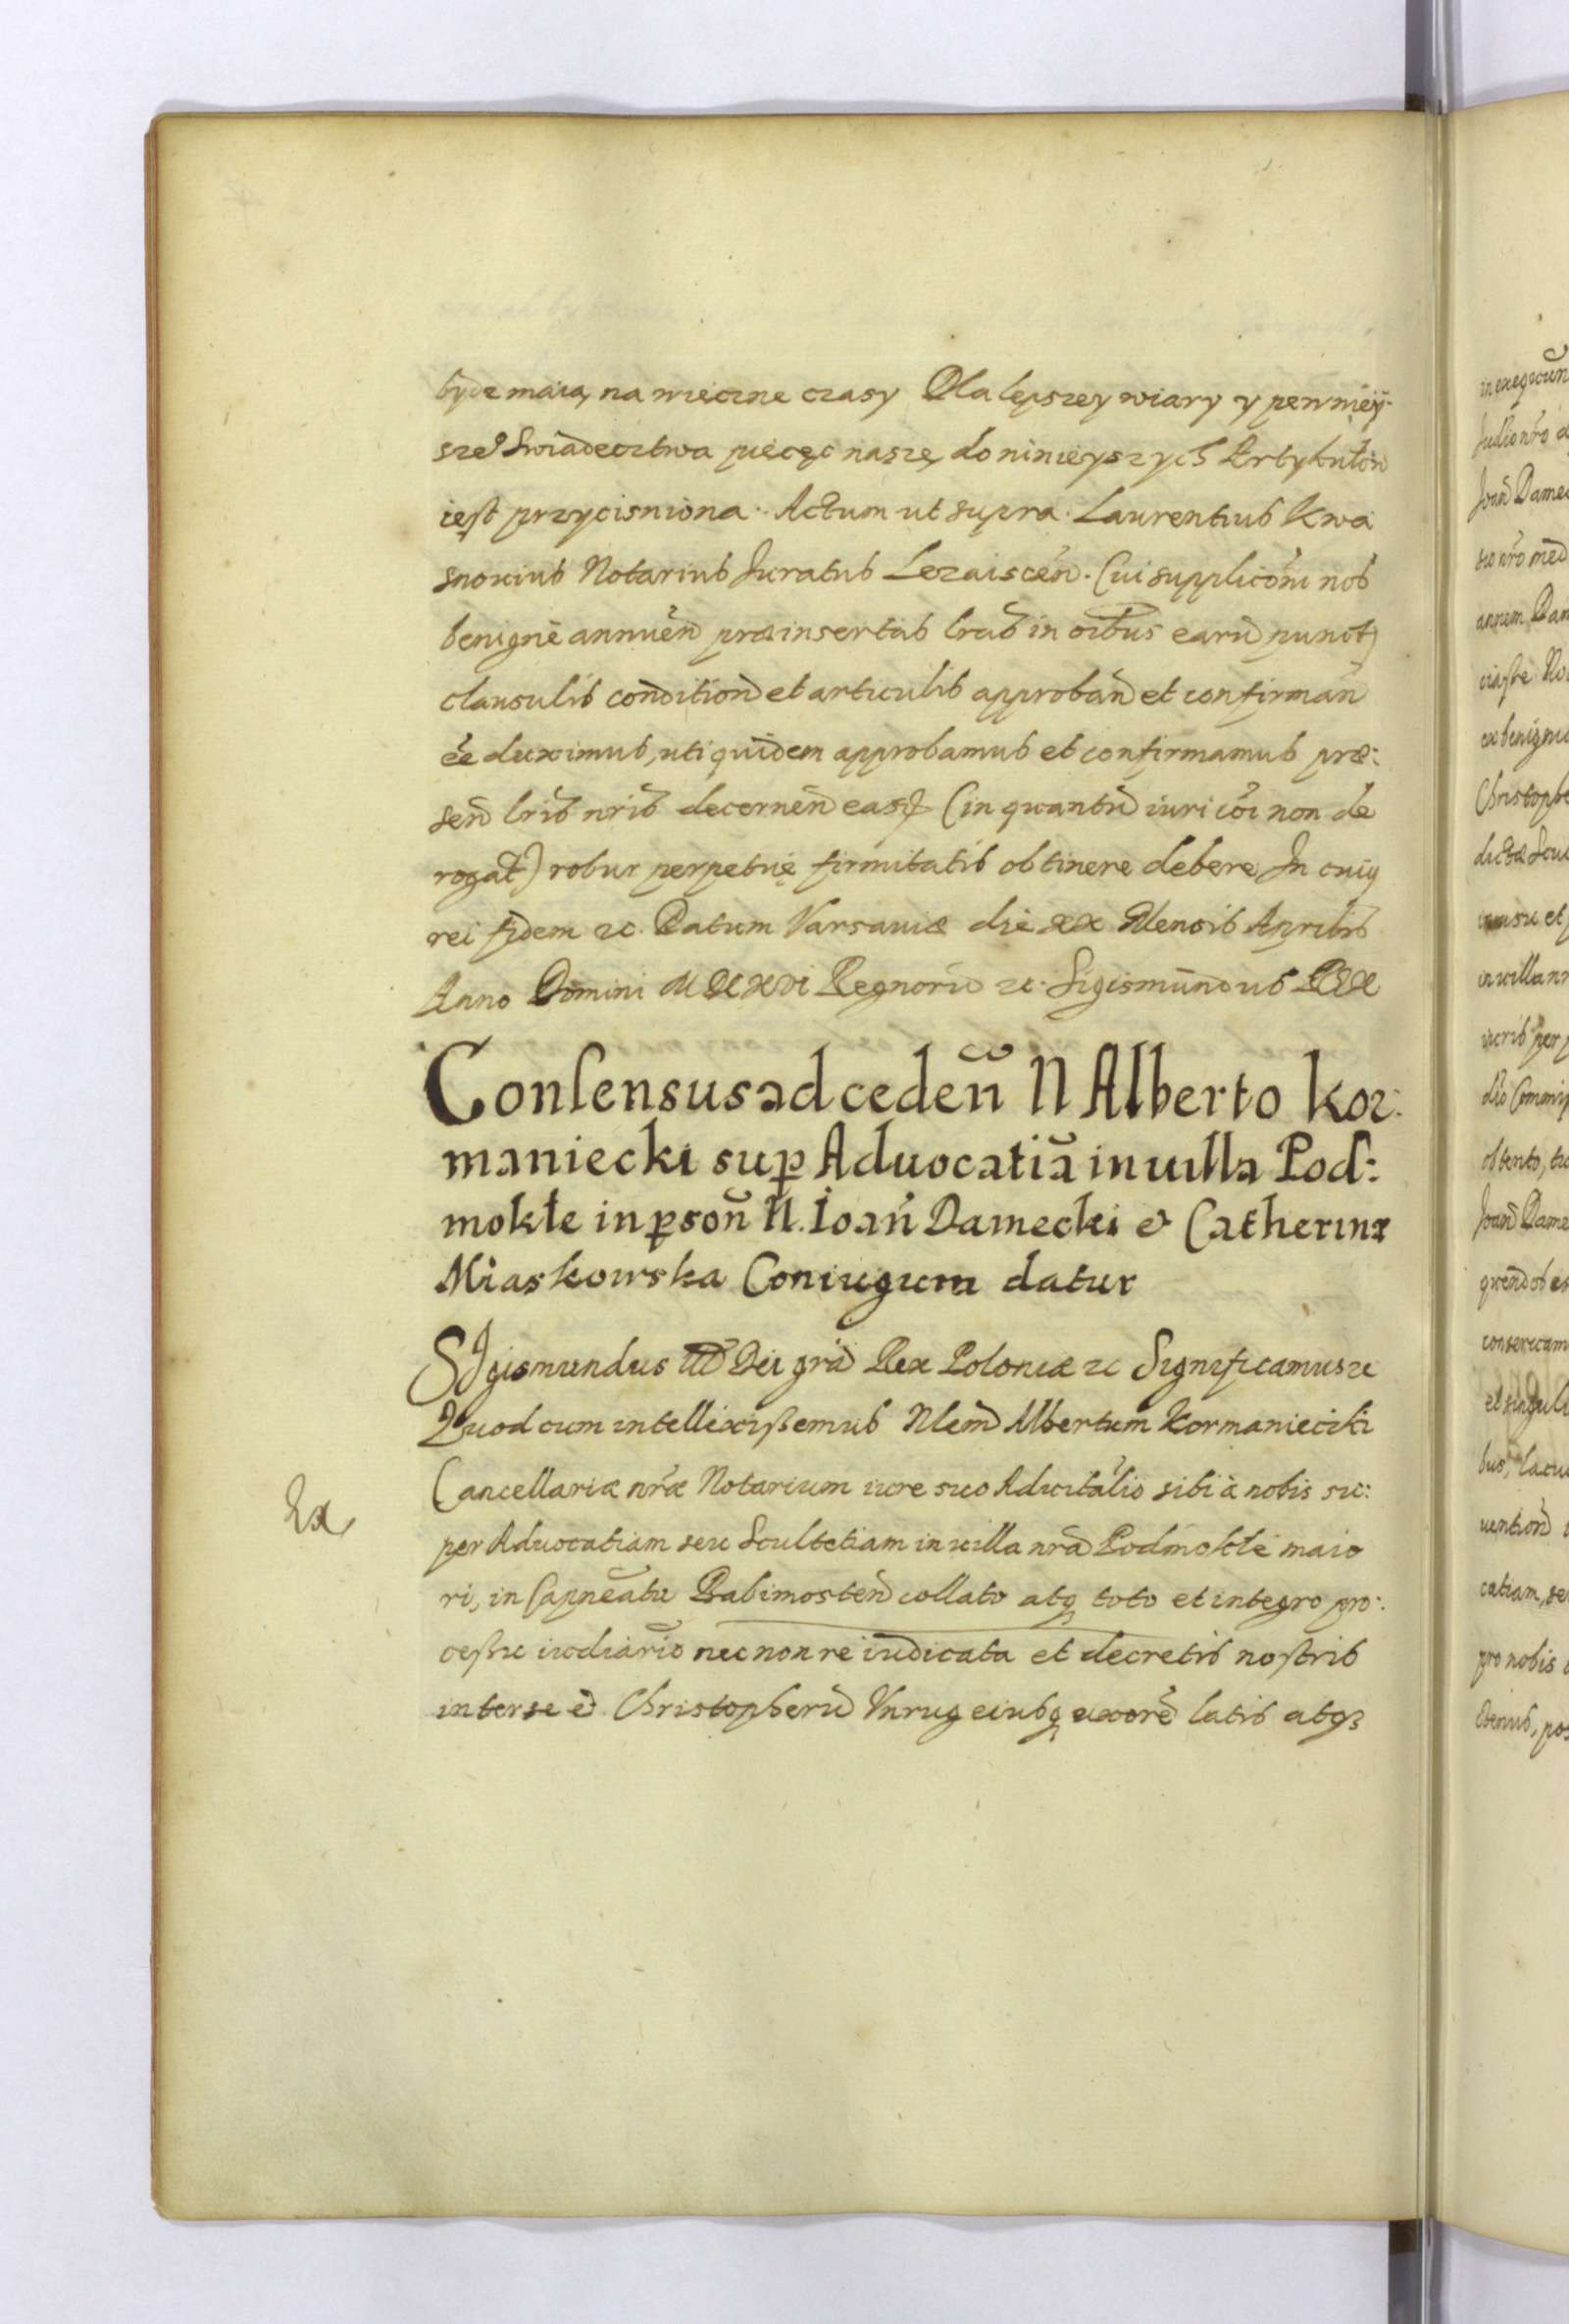 bydz maią na wieczne czasy Dla lepszey wiary y pewniey-
sze° swiadecztwa pieczęc naszę do ninieyszych Artykułow
iest przycisniona. Actum ut supra. Laurentius Kwa
snoxius Notarius Juratus Lezaiscen̄. Cui supplicōni nos
benigne annuen̄ præinsertas lras in oībus earū punct
clausulis condition̄ et articulis approban̄ et confirman̄
eē duximus, uti quidem approbamus et confirmamus præ:
sen̄ lris nris decernen̄ easq (in quantū iuri coi non de
rogat) robur perpetuę firmitatis obtinere debere In cuiq
rei fidem zc. Datum Varsaviæ die xx Mensis Aprilis
Anno Domini MDCXVI Regnorū zc. Sigismundus Rex
Consensus ad ceden̄ N Alberto Kor:
maniecki sup Aduocatiā in uilla Pod:
mokłe in pson̄ N. Ioan̄ Damecki & Catherinæ
Miaskowska Coniugum datur
SIgismundus III Dei gra Rex Poloniæ zc Significamus zc
Quod cum intellexissemus Nlem Albertum Kormaniecki
Cancellariæ nræ Notarium iure suo Aduitalio sibi à nobis su:
Ex
per Aduocatiam seu Scultetiam in uilla nra Podmokłe maio
ri, in Capneatu Babimosten̄ collato atq toto et integro pro:
cessu iudiario nec non re iudicata et decretis nostris
inter se & Christopherū Vnrug eiusq uxorē latis atq3
in exequun
Joan̄ Dame
Christophe
in uilla nr
obtento, tu
Joan̄ Dame
et singuli
catiam, se
pro nobis